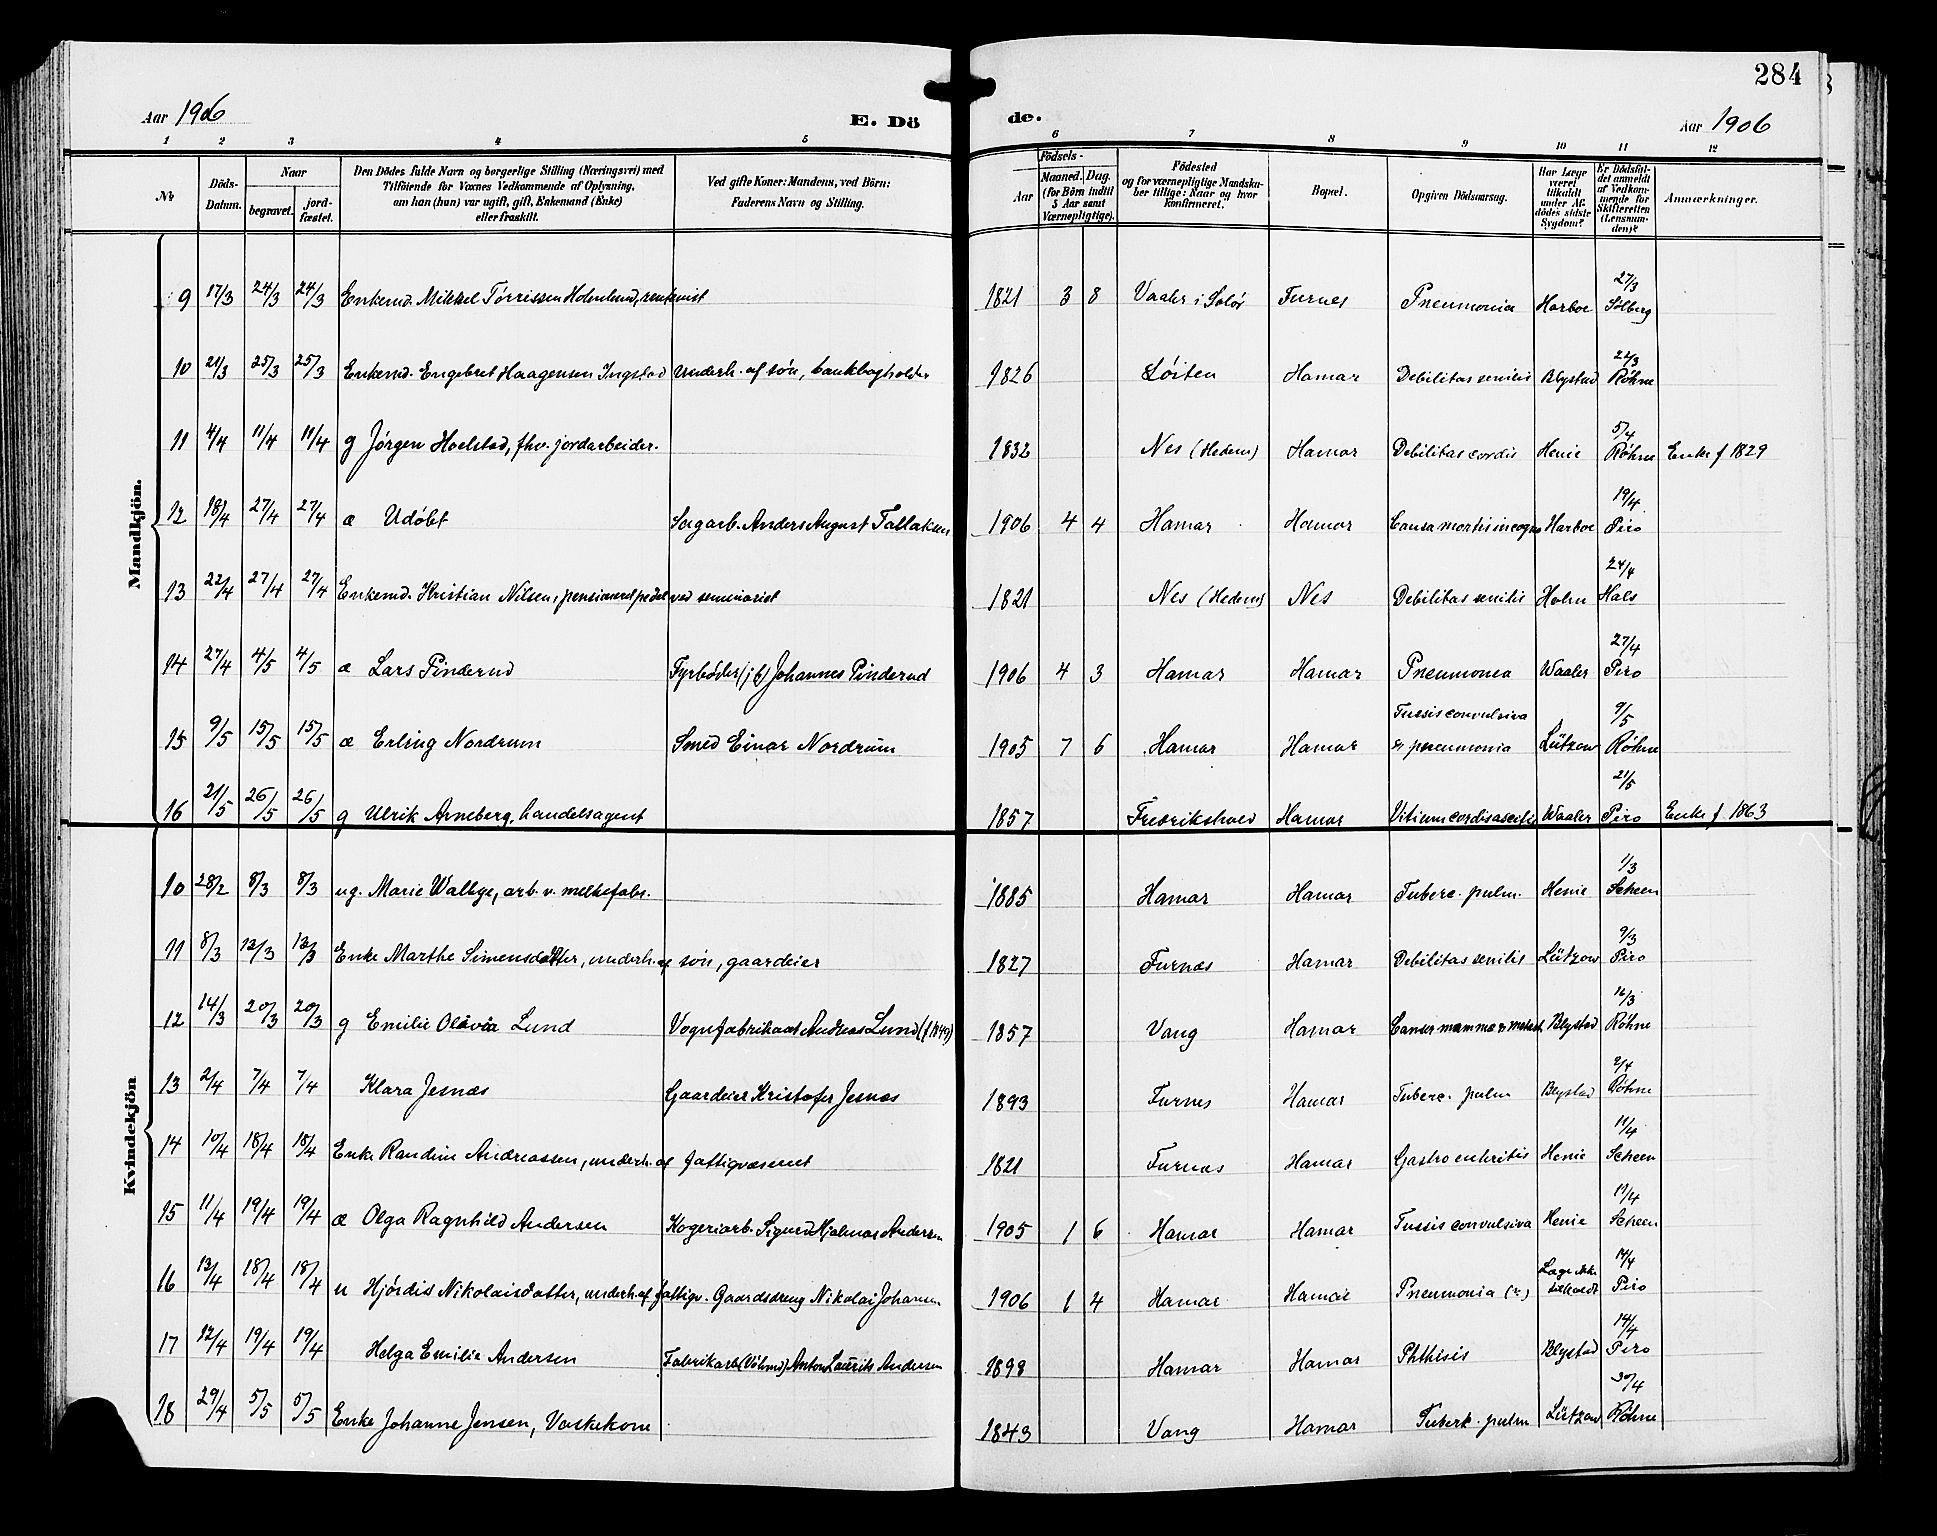 284
Aar 1906 E. Dö de. Aar 1906
1 2 3 4 5 6 7 8 9 10 11 12
No Döds-Datum. Naar begravet. jordfæstet. Den Dödes fulde Navn og borgerlige Stilling (Næringsvei) med Tilföiende for Voxnes Vedkommende af Oplysning, om han (hun) var ugift, gift, Enkemand (Enke) eller fraskilt. Ved gifte Koner: Mandens, ved Börn: Faderens Navn og Stilling. Födsels- Aar Maaned. Dag. (for Börn indtil 5 Aar samt Værnepligtige). Födested og for værnepligtige Mandskaber tillige: Naar og hvor konfirmeret. Bopæl. Opgiven Dödsaarsag. Har Læge været tilkaldt under Afdödes sidste Sygdom? Er Dödsfaldet anmeldt af Vedkommende for Skifteretten (Lensmanden)? Anmærkninger.
Mandkjön.
9 17/3 24/3 24/3 Enkemd. Mikkel Tørrissen Holmlund, rentenist 1821 3 8 Vaaler i Solør Furnes Pneumonia Harboe 27/3 Solberg
10 21/3 25/3 25/3 Enkemd. Engebret Haagensen Ingstad underh. af søn, bankbogholder 1826 Løiten Hamar Debilitas senilis Blystad 22/3 Røhne
11 4/4 11/4 11/4 g Jørgen Hoelstad, fhv. jordarbeider. 1832 Nes (Hedem) Hamar Debilitas cordis Henie 5/4 Røhne Enke f 1829
12 18/4 27/4 27/4 æ Udøbt Sagarb. Anders August Tallaksen 1906 4 4 Hamar Hamar Causa mortis incogn Harboe 19/4 Piro
13 22/4 27/4 27/4 Enkemd. Kristian Nilsen, pensioneret pedel ved seminariet 1821 Nes (Hedem) Nes Debilitas senilis Holm 24/4 Hals
14 27/4 4/5 4/5 æ Lars Pinderud Fyrbøder (jb) Johannes Pinderud 1906 4 3 Hamar Hamar Pneumonia Waaler 27/4 Piro
15 9/5 15/5 15/5 æ Erling Nordrum Smed Einar Nordrum 1905 7 6 Hamar Hamar Tussis convulsiva & pneumonia Lützow 9/5 Røhne
16 21/5 26/5 26/5 g Ulrik Arneberg, handelsagent 1857 Fredrikshald Hamar Vitium cordis ascites Waaler 21/5 Piro Enke f 1863
Kvindekjön
10 28/2 8/3 8/3 ug. Marie Walbye, arb. v. melkefabr. 1885 Hamar Hamar Tuberc. pulm. Henie 1/3 Scheen
11 8/3 13/3 13/3 Enke Marthe Simensdatter, underh. af søn, gaardeier 1827 Furnes Hamar Debilitas senilis Lützow 9/3 Piro
12 14/3 20/3 20/3 g Emilie Olavia Lund Vognfabrikant Andreas Lund (f 1849) 1857 Vang Hamar Cancer mammæ & metast. Blystad 16/3 Røhne
13 2/4 7/4 7/4 Klara Jesnæs Gaardeier Kristofer Jesnæs 1893 Furnes Hamar Tuberc. pulm Blystad 2/4 Røhne
14 10/4 18/4 18/4 Enke Randine Andreassen, underh. af fattigvæsenet 1821 Furnes Hamar Gastroenteritis Henie 11/4 Scheen
15 11/4 19/4 19/4 æ Olga Ragnhild Andersen Kogeriarb. Sigurd Hjalmar Andersen 1905 1 6 Hamar Hamar Tussis convulsiva Henie 17/4 Scheen
16 13/4 18/4 18/4 u Hjørdis Nikolaisdatter, underh. af fattigv. Gaardsdreng Nikolai Johansen 1906 1 4 Hamar Hamar Pneumonia (?) Læge ikke tilkaldt 14/4 Piro
17 12/4 19/4 19/4 Helga Emilie Andersen Fabrikarb Anton Laurits Andersen 1898 Hamar Hamar Phthisis Blystad 14/4 Piro
18 29/4 5/5 5/5 Enke Johanne Jensen, Vaskekone 1843 Vang Hamar Tuberk. pulm Lützow 30/4 Røhne